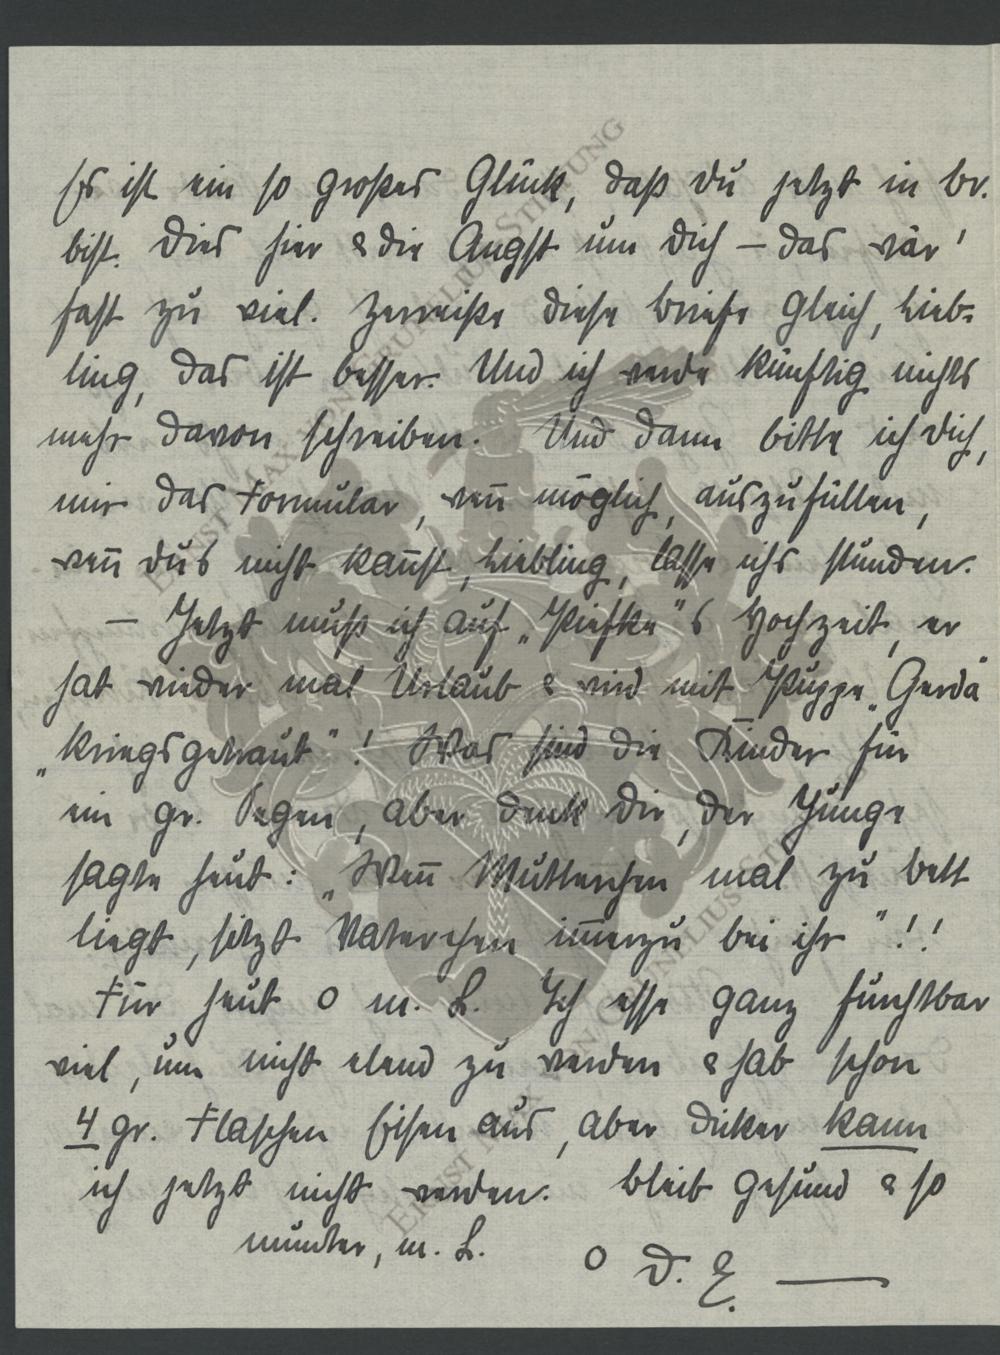 Es ist ein so großes Glück, daß Du jetzt in Br.
bist. Dies hier & die Angst um Dich – das wär'
fast zu viel. Zerreiße diese Briefe gleich, Lieb-
ling, das ist besser. Und ich werde künftig nichts
mehr davon schreiben. Und dann bitte ich Dich,
mir das Formular, weñ möglich, auszufüllen,
weñ Dus nicht kañst, Liebling, lasse ichs stunden.
– Jetzt muß ich auf „Piefke"s Hochzeit, er
hat wieder mal Urlaub & wird mit Puppe „Gerda"
„kriegsgetraut"! Was sind die Kinder für
ein gr. Segen, aber denk Dir, der Junge
sagte heut: „Weñ Mutterchen mal zu Bett
liegt, sitzt Vaterchen im̃erzu bei ihr"!!
Für heut o m. L. Ich esse ganz furchtbar
viel, um nicht elend zu werden & hab schon
4 gr. Flaschen Eisen aus, aber dicker kann
ich jetzt nicht werden. Bleib gesund & so
munter, m. L. o D. E.
ERNST MAX VON GRUNELIUS-STIFTUNG
ERNST MAX VON GRUNELIUS-STIFTUNG